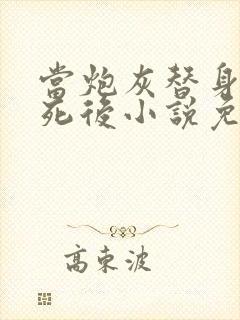 當炮灰替身
死後小說免
高東波